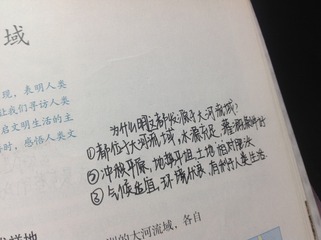 域
现，表明人类
让我们寻访人类
启文明生活的主
时，感悟人类文
为什么明这都发源于大河流域？
①都位于大河流域，水源充足，灌溉条件好
②冲积平原，地势平坦，土地相对肥沃
③气候适宜，环境优良，有利于人类生活.
的大河流域，各自